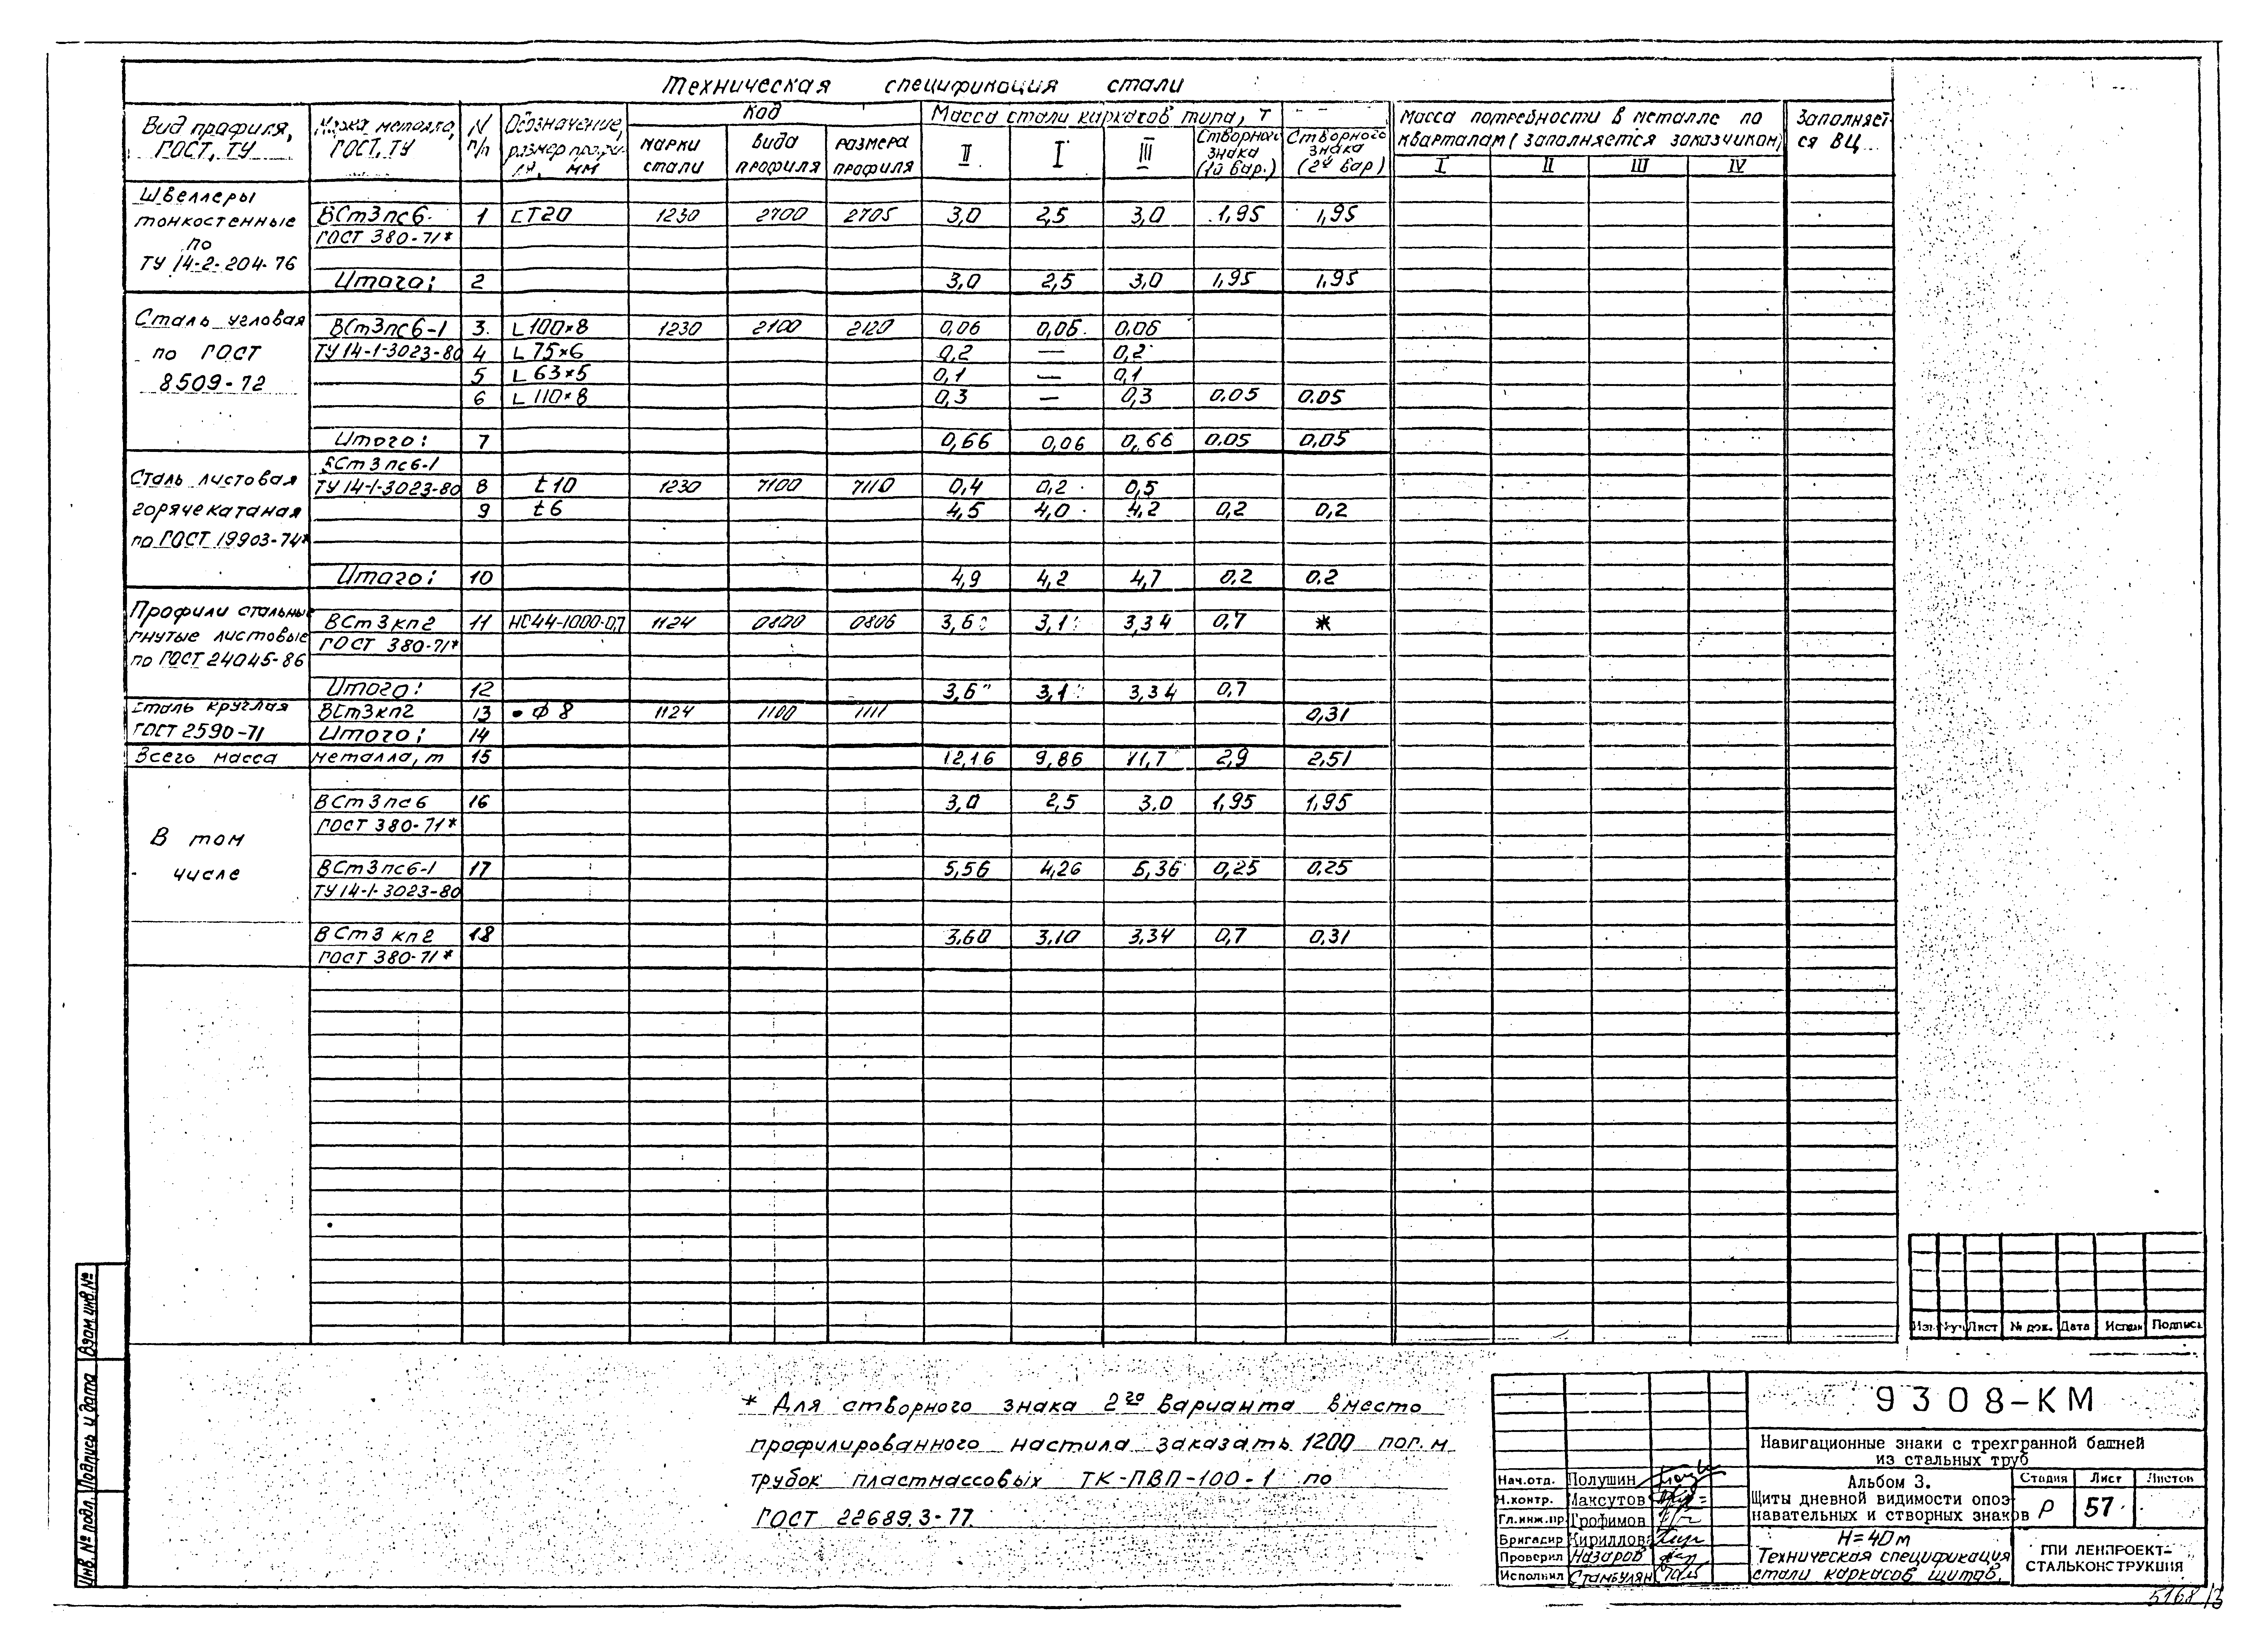 Техническая спецификация стали
Вид профиля, ГОСТ, ТУ
Марка металла, ГОСТ, ТУ
N п/п
Обозначение, размер профиля, мм
Код
марки стали
вида профиля
размера профиля
Масса стали каркасов типа, т
II
I
III
Створного знака (1й вар.)
Створного знака (2й вар)
Масса потребности в металле по
кварталам (заполняется заказчиком)
I II III IV
Заполняет-
ся ВЦ
Швеллеры
тонкостенные
по
ТУ 14-2-204-76
ВСт3пс6 1 СТ20 1230 2700 2705 3,0 2,5 3,0 1,95 1,95
ГОСТ 380-71*
Итого: 2 3,0 2,5 3,0 1,95 1,95
Сталь угловая
по ГОСТ
8509-72
ВСт3пс6-1 3 L 100×8 1230 2100 2120 0,06 0,06 0,06
ТУ 14-1-3023-80 4 L 75×6 0,2 — 0,2
5 L 63×5 0,1 — 0,1
6 L 110×8 0,3 — 0,3 0,05 0.05
Итого: 7 0,66 0,06 0,66 0,05 0,05
Сталь листовая
горячекатаная
по ГОСТ 19903-74*
ВСт3пс6-1
ТУ 14-1-3023-80 8 t10 1230 7100 7110 0,4 0,2 0,5
9 t6 4,5 4,0 4,2 0,2 0,2
Итого: 10 4,9 4,2 4,7 0,2 0,2
Профили стальные
гнутые листовые
по ГОСТ 24045-86
ВСт3кп2 11 НС44-1000-0,7 1124 0800 0806 3,6 3,1 3,34 0,7 *
ГОСТ 380-71*
Итого: 12 3,6 3,1 3,34 0,7
Сталь круглая
ГОСТ 2590-71
ВСт3кп2 13 • Ф 8 1124 1100 1111 0,31
Итого: 14
Всего масса металла, т 15 12,16 9,86 11,7 2,9 2,51
В том
числе
ВСт3пс6 16 3,0 2,5 3.0 1,95 1,95
ГОСТ 380-71*
ВСт3пс6-1 17 5,56 4,26 5,36 0,25 0,25
ТУ 14-1-3023-80
ВСт3кп2 18 3,60 3,10 3,34 0,7 0,31
ГОСТ 380-71*
* Для створного знака 2го варианта вместо
профилированного настила заказать 1200 пог.м
трубок пластмассовых ТК-ПВП-100-1 по
ГОСТ 22689.3-77.
Взам.инв.№
Подпись и дата
Инв.№ подл.
Изм. Лист № док. Дата Подпись
9308-КМ
Навигационные знаки с трехгранной башней
из стальных труб
Альбом 3.
Щиты дневной видимости опоз-
навательных и створных знаков
Стадия Лист Листов
Р 57
Н=40м
Техническая спецификация
стали каркасов щитов.
ГПИ ЛЕНПРОЕКТ-
СТАЛЬКОНСТРУКЦИЯ
Нач.отд. Полушин
Н.контр. Максутов
Гл.инж.пр. Трофимов
Бригадир Кириллова
Проверил Назаров
Исполнил Стамбулян
5168/3